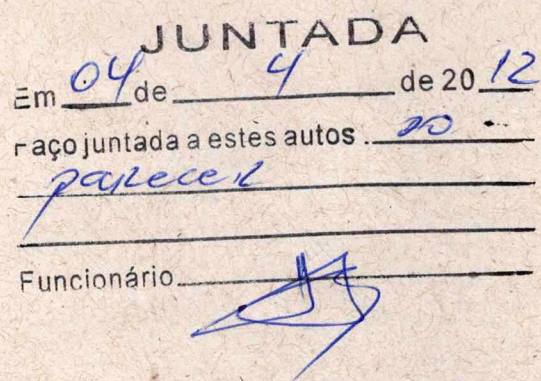 JUNTADA
Em 04 de 4 de 20 12
Faço juntada a estes autos.
parecer
Funcionário